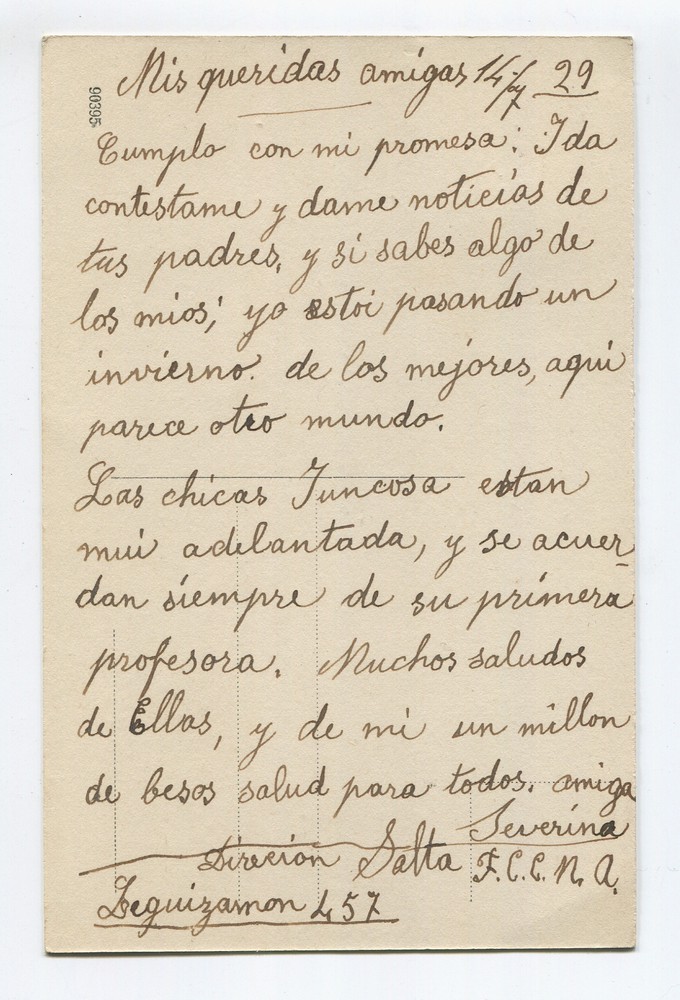 Mis queridas amigas 14/7 29
90395
Cumplo con mi promesa: Ida
contestame y dame noticias de
tus padres, y si sabes algo de
los mios; yo estoi pasando un
invierno. de los mejores, aqui
parece otro mundo.
Las chicas Juncosa estan
mui adelantada, y se acuer-
dan siempre de su primera
profesora. Muchos saludos
de Ellas, y de mi un millon
de besos salud para todos. amiga
Severina
Direción Salta F.C.C.N.A.
Leguizamon 457